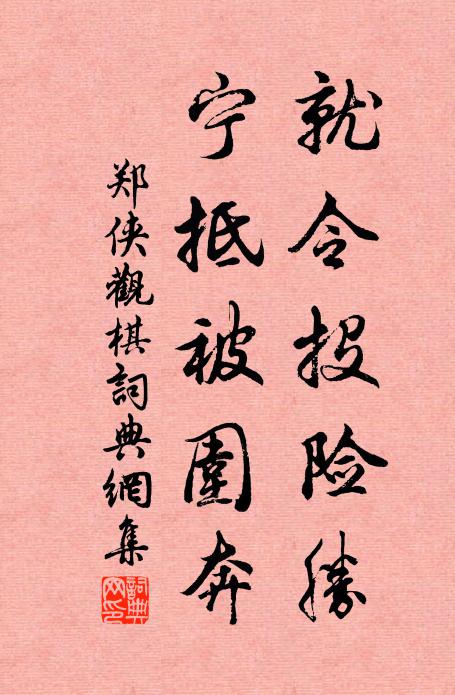 就令投险勝
宁抵被圍奔
郑侠觀棋詞典網集
詞典网印